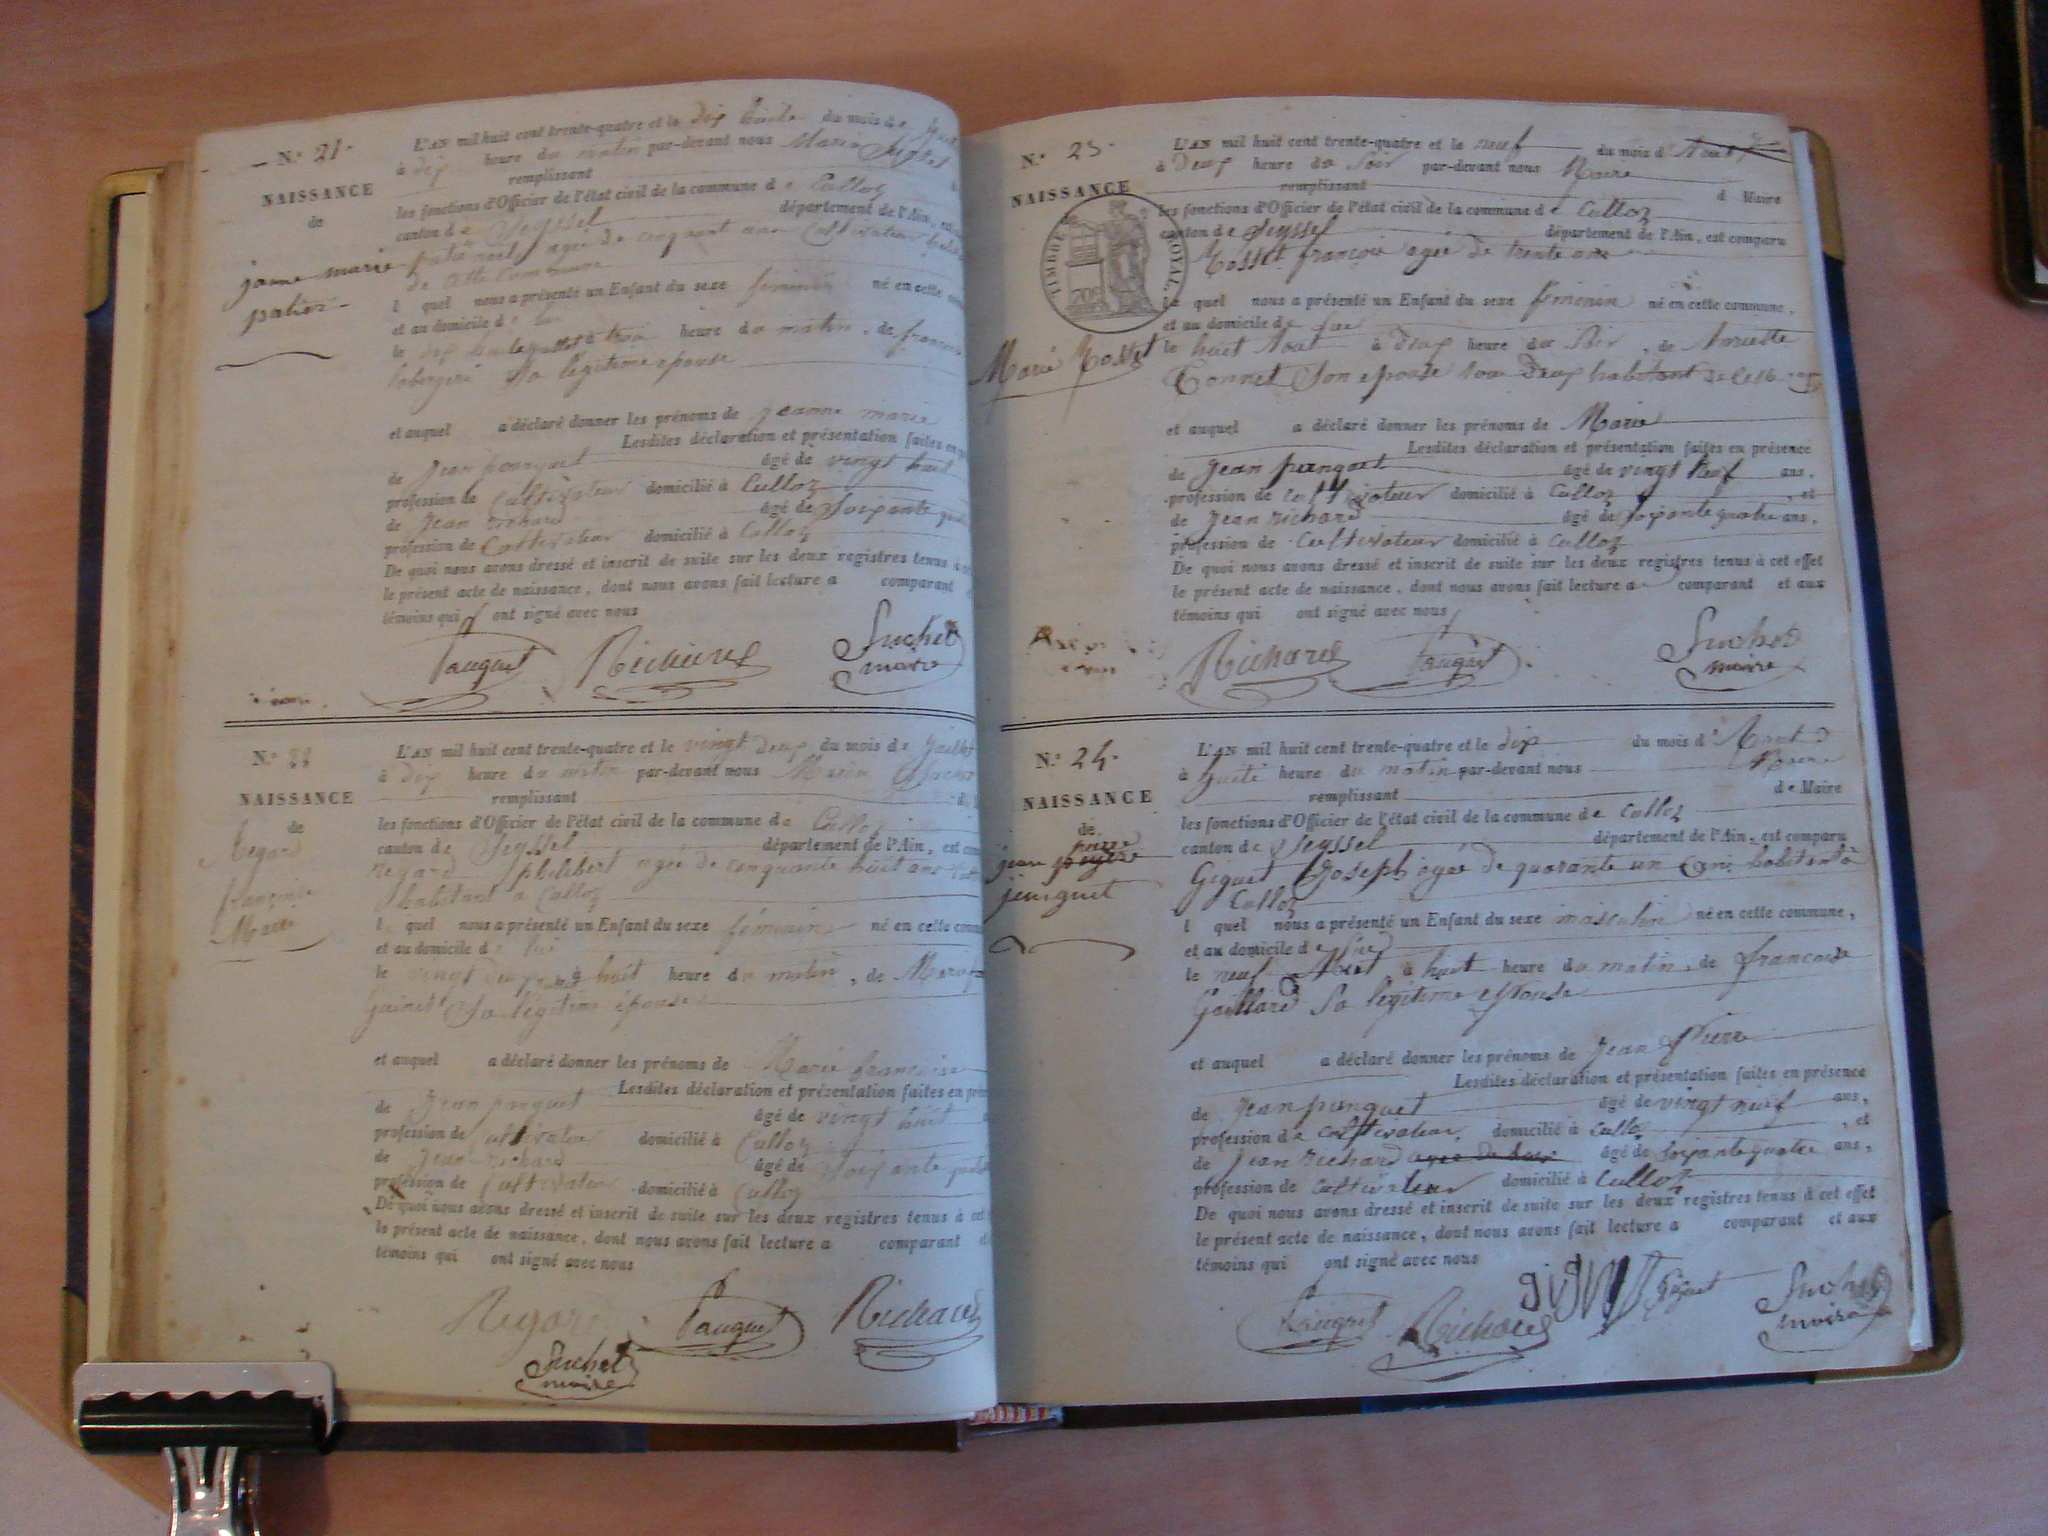 N.° 21.
NAISSANCE
de
jeanne marie
L'AN mil huit cent trente-quatre et le dix huit du mois de
à dix heure du matin par-devant nous Maire Suchet
remplissant
les fonctions d'Officier de l'état civil de la commune de Culloz
canton de Seyssel département de l'Ain,
agée de cinquant ans Cultivateur
de cette commune
l quel nous a présenté un Enfant du sexe féminin né en cette
et au domicile de lui
le dix huit juillet à trois heure du matin, de
sa légitime epouse
et auquel a déclaré donner les prénoms de jeanne marie
Lesdites déclaration et présentation faites en
de Jean pauquet âgé de vingt huit
profession de Cultivateur domicilié à Culloz
de Jean richard âgé de Soixante
profession de Cultivateur domicilié à Culloz
De quoi nous avons dressé et inscrit de suite sur les deux registres tenus à
le présent acte de naissance, dont nous avons fait lecture a comparant
témoins qui ont signé avec nous
Pauquet Richard Suchet
maire
N.° 22
NAISSANCE
de
Regard
françoise
Marie
L'AN mil huit cent trente-quatre et le vingt deux du mois de juillet
à dix heure du matin par-devant nous Maire Suchet
remplissant
les fonctions d'Officier de l'état civil de la commune de Culloz
canton de Seyssel département de l'Ain, est
regard philibert agée de cinquante huit ans
habitant a Culloz
l quel nous a présenté un Enfant du sexe féminin né en cette
et au domicile de lui
le vingt deux à huit heure du matin, de
sa légitime épouse
et auquel a déclaré donner les prénoms de Marie françoise
Lesdites déclaration et présentation faites en
de Jean pauquet âgé de vingt huit
profession de cultivateur domicilié à Culloz
de Jean richard âgé de Soixante
profession de Cultivateur domicilié à Culloz
De quoi nous avons dressé et inscrit de suite sur les deux registres tenus à cet
le présent acte de naissance, dont nous avons fait lecture a comparant
témoins qui ont signé avec nous
Regard Pauquet Richard
Suchet
maire
N.° 23.
NAISSANCE
TIMBRE ROYAL.
70c
Marie Rosset
L'AN mil huit cent trente-quatre et le neuf du mois d'Aout
à Deux heure du Soir par-devant nous Maire
remplissant d Maire
les fonctions d'Officier de l'état civil de la commune de Culloz
canton de Seyssel département de l'Ain, est comparu
Rosset françois agée de trente ans
le quel nous a présenté un Enfant du sexe féminin né en cette commune,
et au domicile de
le huit Aout à Deux heure du Soir, de
Son epouse tous Deux habitant de cette
et auquel a déclaré donner les prénoms de Marie
Lesdites déclaration et présentation faites en présence
de Jean pauquet âgé de vingt neuf ans,
profession de cultivateur domicilié à Culloz, et
de Jean richard âgé de soixante quatre ans,
profession de Cultivateur domicilié à Culloz
De quoi nous avons dressé et inscrit de suite sur les deux registres tenus à cet effet
le présent acte de naissance, dont nous avons fait lecture a comparant et aux
témoins qui ont signé avec nous
Richard Pauquet Suchet
maire
N.° 24.
NAISSANCE
de
pierre
jean
L'AN mil huit cent trente-quatre et le dix du mois d'Aout
à heure du matin par-devant nous Maire
remplissant de Maire
les fonctions d'Officier de l'état civil de la commune de Culloz
canton de Seyssel département de l'Ain, est comparu
Giguet Joseph agée de quarante un ans habitant à
Culloz
l quel nous a présenté un Enfant du sexe masculin né en cette commune,
et au domicile de
le neuf Aout à huit heure du matin, de francoise
Gaillard sa legitime epouse
et auquel a déclaré donner les prénoms de Jean Pierre
Lesdites déclaration et présentation faites en présence
de Jean pauquet âgé de vingt neuf ans,
profession de cultivateur, domicilié à Culloz, et
de Jean richard âgé de soixante quatre ans,
profession de cultivateur domicilié à Culloz
De quoi nous avons dressé et inscrit de suite sur les deux registres tenus à cet effet
le présent acte de naissance, dont nous avons fait lecture a comparant et aux
témoins qui ont signé avec nous
Pauquet Richard Giguet Suchet
maire